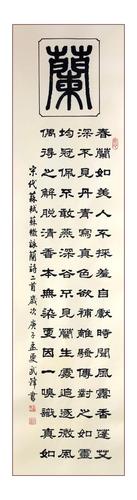 蘭
春蘭如美人不採羞自獻時聞風露香蓬艾
深不見丹青寫真色欲補離騷傳對之如靈
均冠佩不敢燕深谷不見蘭生處追逐微風
偶得之解脫清香本無染更因一嗅識真如
宋代蘇軾蘇轍詠蘭詩二首歲次庚子孟夏武書